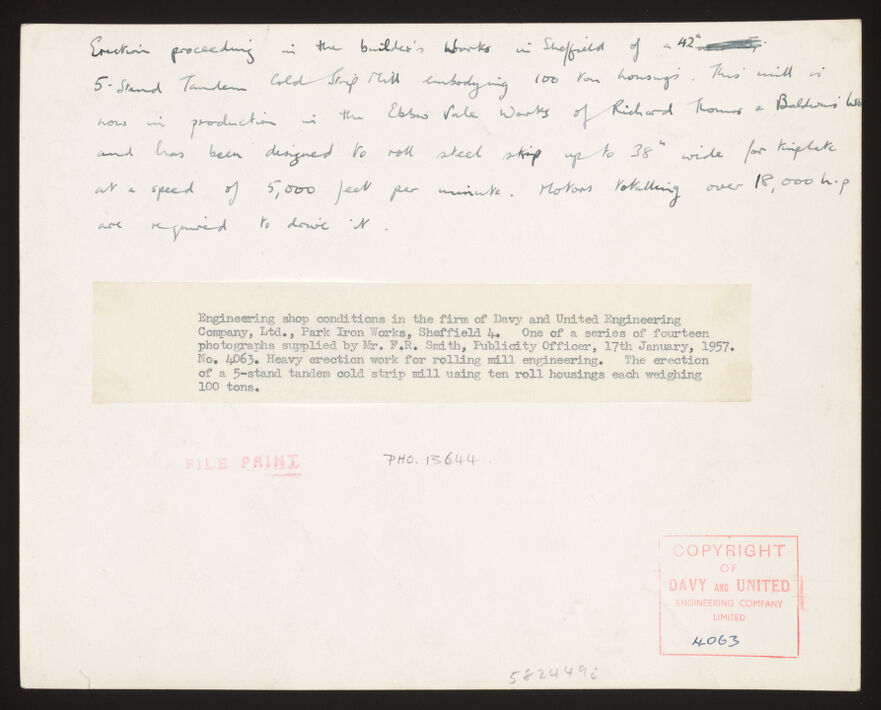 Erection proceeding in the builder's works in Sheffield of a 42"
5-Stand Tandem Cold Strip Mill embodying 100 ton housings. This mill is
now in production in the Ebbw Vale Works of Richard Thomas & Baldwins
and has been designed to roll steel strip up to 38" wide for tinplate
at a speed of 5,000 feet per minute. Motors totalling over 18,000 h.p
are required to drive it.
Engineering shop conditions in the firm of Davy and United Engineering
Company, Ltd., Park Iron Works, Sheffield 4. One of a series of fourteen
photographs supplied by Mr. F.R. Smith, Publicity Officer, 17th January, 1957.
No. 4063. Heavy erection work for rolling mill engineering. The erection
of a 5-stand tandem cold strip mill using ten roll housings each weighing
100 tons.
FILE PRINT
PHO. 13644.
COPYRIGHT
OF
DAVY AND UNITED
ENGINEERING COMPANY
LIMITED
4063
582449i